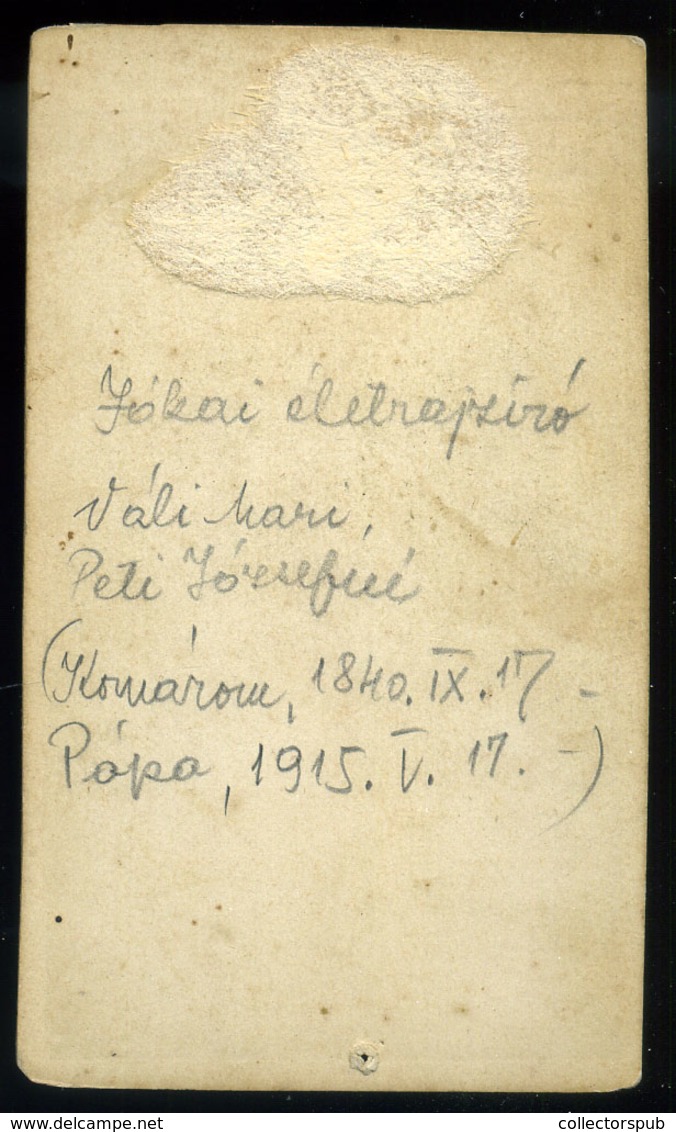 Jókai életrajzíró
Váli Mari,
Peti Józsefné
(Komárom, 1840. IX. 17 -
Pápa, 1915. V. 17. -)
DELCAMPE.NET
collectorspub